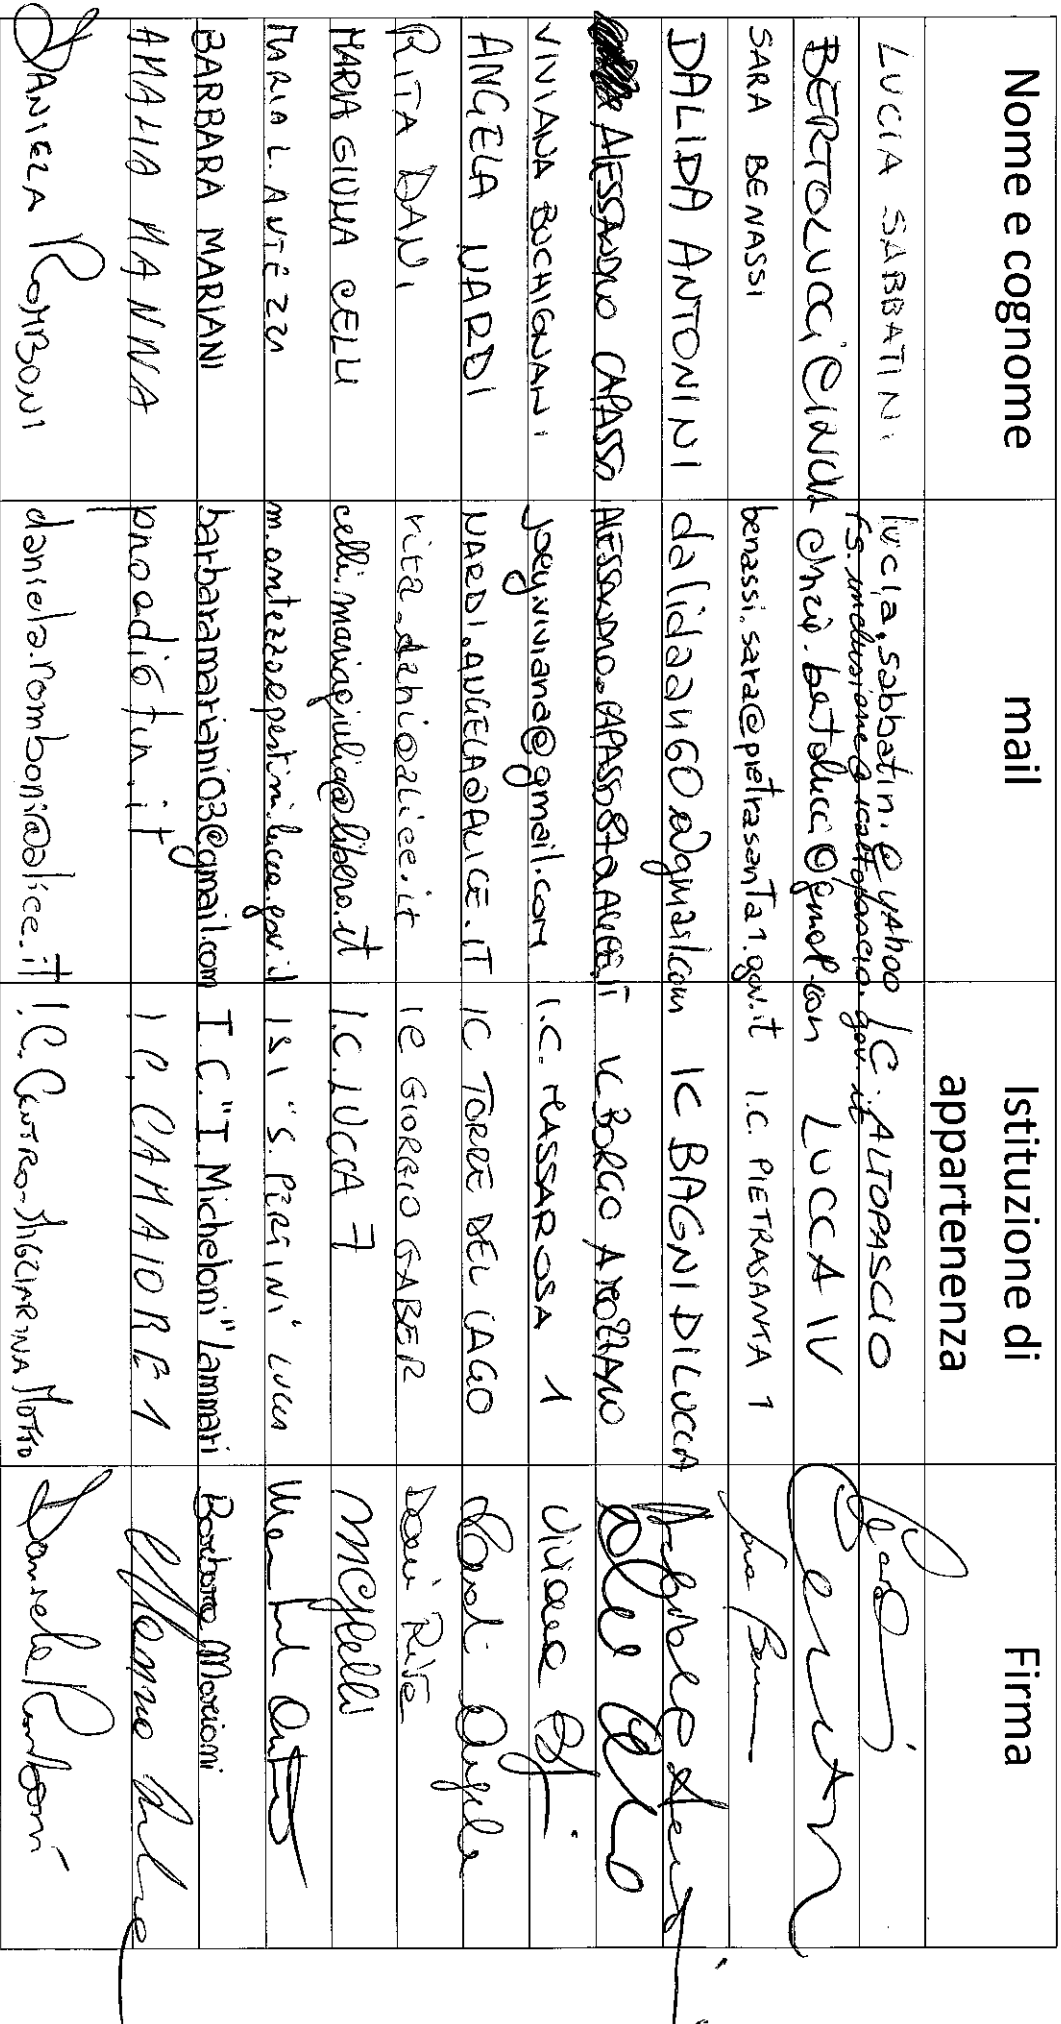 Nome e cognome mail Istituzione di appartenenza Firma
LUCIA SABBATINI lucia.sabbatini@yahoo I.C. ALTOPASCIO
fs.inclusione@icaltopascio.gov.it
BERTOLUCCI CINZIA cinzia.bertolucci@gmail.com LUCCA IV
SARA BENASSI benassi.sara@pietrasanta1.gov.it I.C. PIETRASANTA 1
DALIDA ANTONINI dalidaan60@gmail.com IC BAGNI DI LUCCA
ALESSANDRO CAPASSO ALESSANDRO.CAPASSO87@ALICE.IT IC BORGO A MOZZANO
VIVIANA BUCHIGNANI joeyviviana@gmail.com I.C. MASSAROSA 1 Viviana
ANGELA NARDI NARDI.ANGELA@ALICE.IT IC TORRE DEL LAGO Nardi Angela
RITA DANI rita.dani@alice.it IC GIORGIO GABER Dani Rita
MARIA GIULIA CELLI celli.mariagiulia@libero.it I.C. LUCCA 7 MGCelli
MARIA L. ANTEZZA m.antezza@pertini.lucca.gov.it ISI "S. PERTINI" LUCCA
BARBARA MARIANI barbaramariani03@gmail.com I.C. "I. Micheloni" Lammari Barbara Mariani
AMALIA MANNA pnoadi@tin.it I.C. CAMAIORE 1
DANIELA ROMBONI daniela.romboni@alice.it I.C. CENTRO-MIGLIARINA MOTTO Daniela Romboni